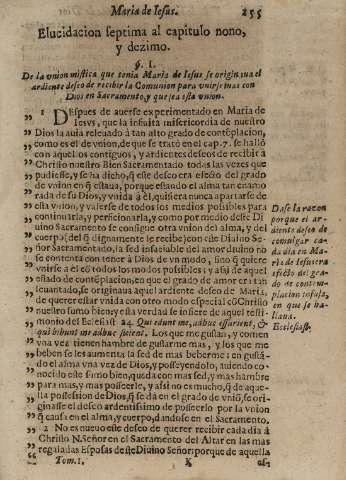 Maria de Iesus. 255
Elucidacion septima al capitulo nono,
y dezimo.
§. I.
De la vnion mistica que tenia Maria de Iesus se origina ua el
ardiente deseo de recibir la Comunion para vnirse mas con
Dios en Sacramento, y que sea esta vnion.
„ 1 DEspues de auerse experimentado en Maria de
„ Iesvs, que la infinita misericordia de nuestro
„ Dios la auia releuado à tan alto grado de contẽplacion,
„ como es el de vnion, de que se trató en el cap. 7. se halló
„ con aquellos contiguos, y ardientes deseos de recibir à
„ Christo nuestro Bien Sacramentado todas las vezes que
„ pudiesse, y se ha dicho, q̃ este deseo era efecto del grado
„ de vnion en q̃ estaua, porque estando el alma tan enamo
„ rada de su Dios, y vnida à èl, quisiera nunca apartarse de
„ esta vnion, y valerse de todos los medios possibles para
„ continuarla, y perficionarla, y como por medio deste Di
„ uino Sacramento se consigue otra vnion del alma, y del
„ cuerpo (del q̃ dignamente le recibe) con este Diuino Se-
„ ñor Sacramentado, la sed insaciable del amor diuino no
„ se contenta con tener à Dios de vn modo, sino q̃ quiere
„ vnirse à èl cõ todos los modos possibles: y assi de aquel
„ estado de contẽplacion, en que el grado de amor era tan
„ leuantado, se originaua aquel ardiente deseo de Maria,
„ de querer estar vnida con otro modo especial cõ Christo
„ nuestro sumo bien; y esta verdad se insiere de aquel testi
„ monio del Eclesiast. 24. Qui edunt me, adhuc essurient, &
„ qui bibunt me adhuc sitient. Los que me gustan, y comen
„ vna vez tienen hambre de gustarme mas, y los que me
„ beben se les aumenta la sed de mas beberme: en gustã-
„ do el alma vna vez de Dios, y posseyendolo, auiendo co-
„ nocido este sumo bien, queda con mas sed, y mas hambre
„ para mas, y mas posseerle, y assi no es mucho, q̃ de aque-
„ lla possession de Dios, q̃ se dà en el grado de vniõ, se ori-
„ ginasse el deseo ardentissimo de posseerlo por la vnion
„ q̃ causa en el alma, y cuerpo, dandose en el Sacramento.
„ 2 No es nueuo este deseo de querer recibir cada dia à
„ Christo N. Señor en el Sacramento del Altar en las mas
„ regaladas Esposas deste Diuino Señor; porque de aquella
Tom. I.
Dase la razon
porque el ar-
diente deseo de
comulgar ca-
da dia en Ma-
ria de Iesus era
efecto del gra-
do de contem-
placion infusa,
en que se ha-
llaua.